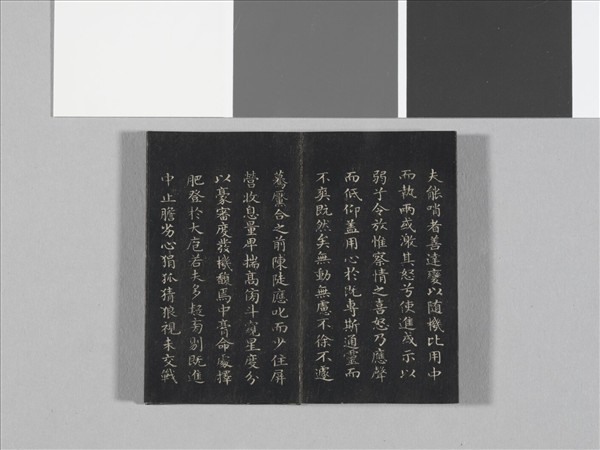 夫能哨者善達變以隨機比用中
而執兩或激其怒兮使進或示以
弱兮令放惟察情之喜怒乃應聲
而低仰盖用心於既專斯通靈而
不爽既然矣無動無慮不徐不遽
合之前陳陡應叱而少住屏
營收息量卑揣高斗星度分
以豪審度發機馥焉中膏命處擇
肥登於大庖若夫多旁剔既進
中止膽劣心狷狐猜狼視未交戰